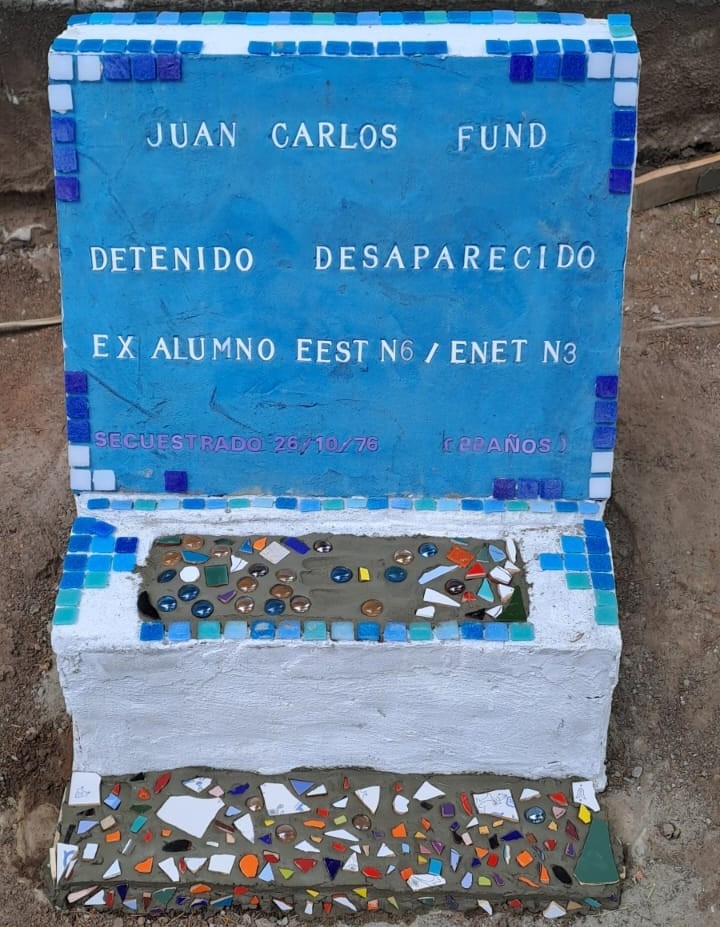 JUAN CARLOS FUND
DETENIDO DESAPARECIDO
EX ALUMNO EEST N6 / ENET N3
SECUESTRADO 26/10/76 (22AÑOS)